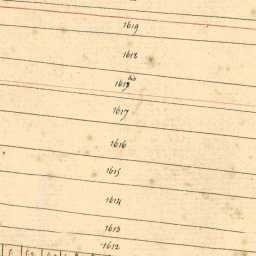 1619
1618
1617
1616
1615
1614
1613
1612